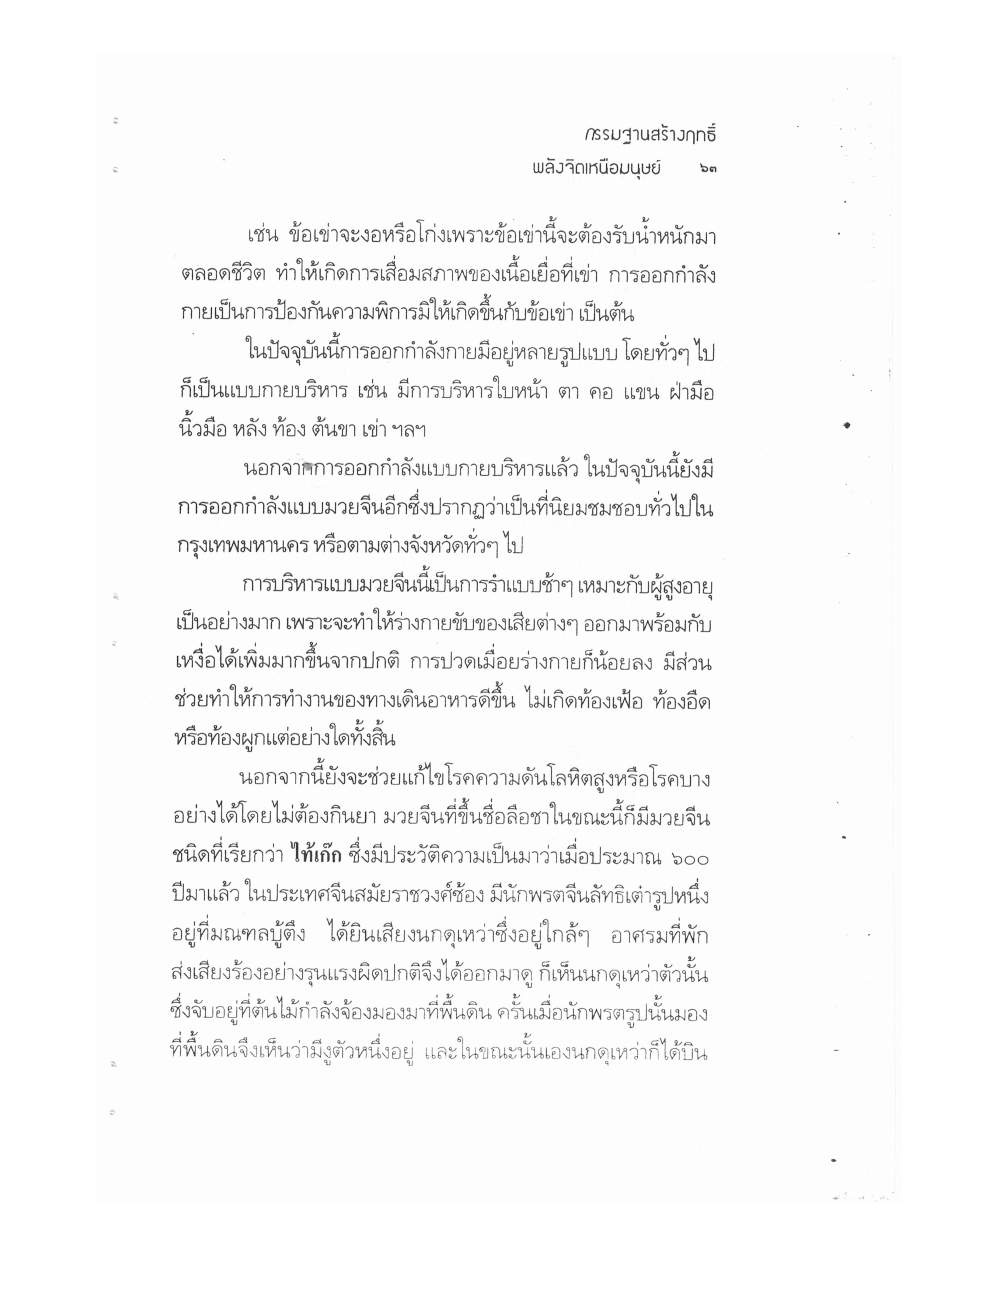 กรรมฐานสร้างฤทธิ์
พลังจิตเหนือมนุษย์ ๖๓
เช่น ข้อเข่าจะงอหรือโก่งเพราะข้อเข่านี้จะต้องรับน้ำหนักมา
ตลอดชีวิต ทำให้เกิดการเสื่อมสภาพของเนื้อเยื่อที่เข่า การออกกำลัง
กายเป็นการป้องกันความพิการมิให้เกิดขึ้นกับข้อเข่า เป็นต้น
ในปัจจุบันนี้การออกกำลังกายมีอยู่หลายรูปแบบ โดยทั่วๆ ไป
ก็เป็นแบบกายบริหาร เช่น มีการบริหารใบหน้า ตา คอ แขน ฝ่ามือ
นิ้วมือ หลัง ท้อง ต้นขา เข่า ฯลฯ
นอกจากการออกกำลังแบบกายบริหารแล้ว ในปัจจุบันนี้ยังมี
การออกกำลังแบบมวยจีนอีกซึ่งปรากฏว่าเป็นที่นิยมชมชอบทั่วไปใน
กรุงเทพมหานคร หรือตามต่างจังหวัดทั่วๆ ไป
การบริหารแบบมวยจีนนี้เป็นการรำแบบช้าๆ เหมาะกับผู้สูงอายุ
เป็นอย่างมาก เพราะจะทำให้ร่างกายขับของเสียต่างๆ ออกมาพร้อมกับ
เหงื่อได้เพิ่มมากขึ้นจากปกติ การปวดเมื่อยร่างกายก็น้อยลง มีส่วน
ช่วยทำให้การทำงานของทางเดินอาหารดีขึ้น ไม่เกิดท้องเฟ้อ ท้องอืด
หรือท้องผูกแต่อย่างใดทั้งสิ้น
นอกจากนี้ยังจะช่วยแก้ไขโรคความดันโลหิตสูงหรือโรคบาง
อย่างได้โดยไม่ต้องกินยา มวยจีนที่ขึ้นชื่อลือชาในขณะนี้ก็มีมวยจีน
ชนิดที่เรียกว่า ไท้เก๊ก ซึ่งมีประวัติความเป็นมาว่าเมื่อประมาณ ๖๐๐
ปีมาแล้ว ในประเทศจีนสมัยราชวงศ์ซ้อง มีนักพรตจีนลัทธิเต๋ารูปหนึ่ง
อยู่ที่มณฑลบู้ตึง ได้ยินเสียงนกดุเหว่าซึ่งอยู่ใกล้ๆ อาศรมที่พัก
ส่งเสียงร้องอย่างรุนแรงผิดปกติจึงได้ออกมาดู ก็เห็นนกดุเหว่าตัวนั้น
ซึ่งจับอยู่ที่ต้นไม้กำลังจ้องมองมาที่พื้นดิน ครั้นเมื่อนักพรตรูปนั้นมอง
ที่พื้นดินจึงเห็นว่ามีงูตัวหนึ่งอยู่ และในขณะนั้นเองนกดุเหว่าก็ได้บิน